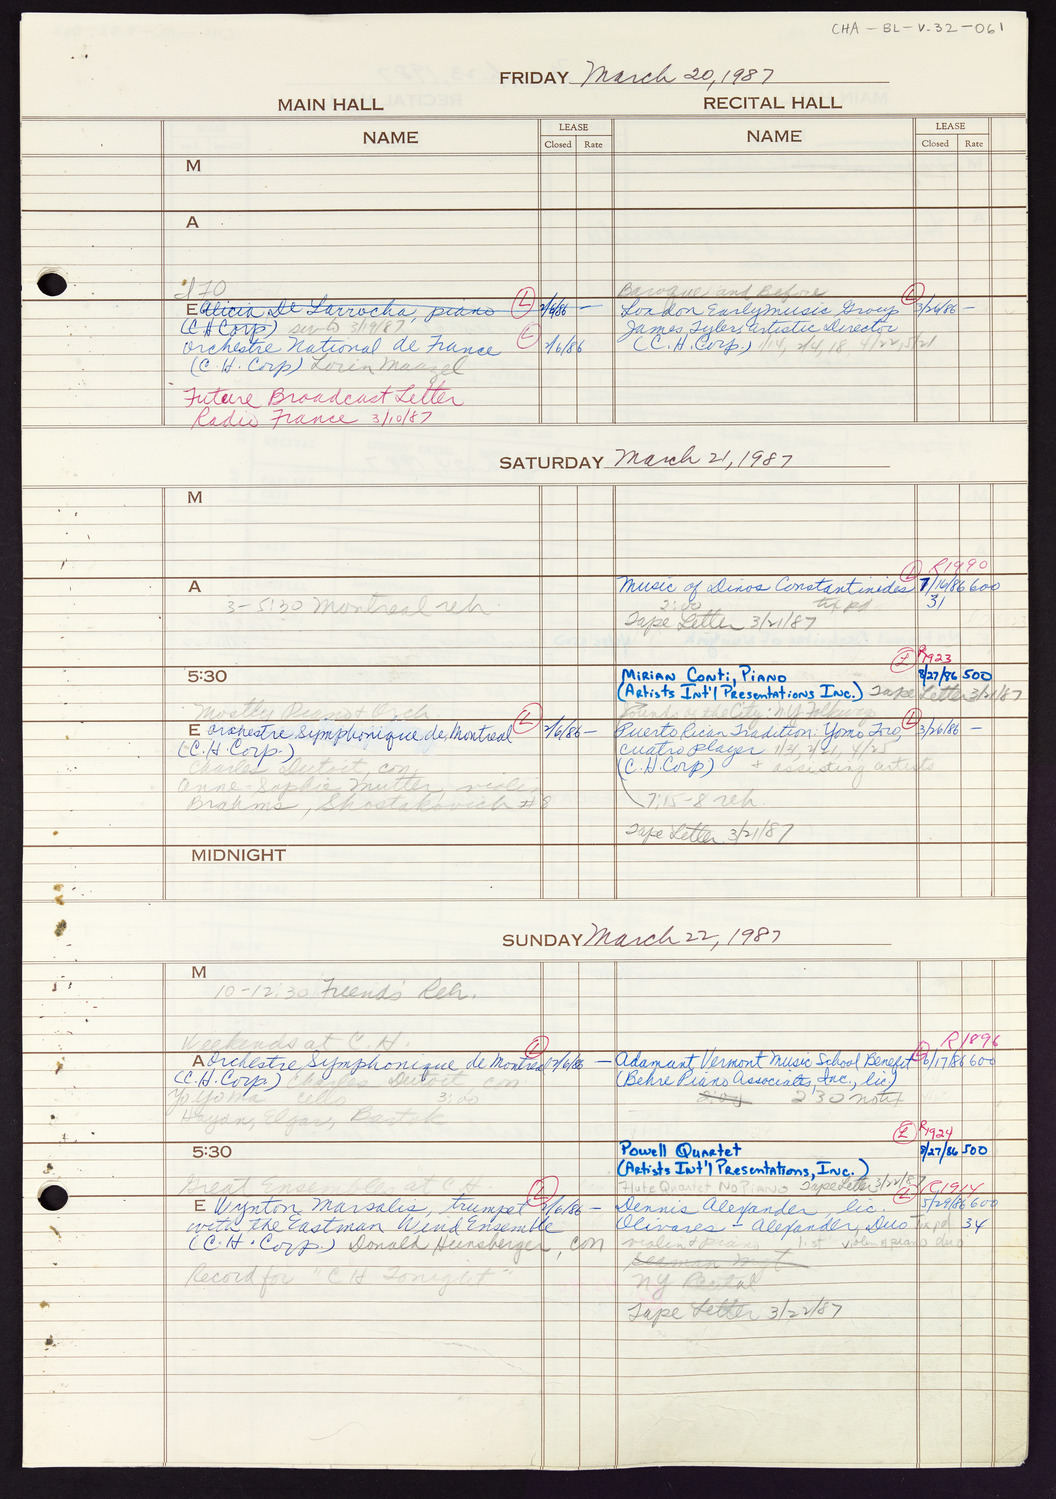 CHA-BL-V.32-061
FRIDAY March 20, 1987
MAIN HALL
RECITAL HALL
NAME
LEASE
Closed Rate
NAME
LEASE
Closed Rate
M
A
E Alicia De Larrocha, piano L 2/6/86 —
(C H Corp) 3/19/87
Orchestre National de France L 2/6/86
(C.H. Corp) Lorin Maazel
Future Broadcast Letter
Radio France 3/10/87
Baroque and Before
London Early Music Group L 3/26/86 —
James Tyler, Artistic Director
(C.H. Corp.) 1/14, 2/4, 18, 4/22, 5/21
SATURDAY March 21, 1987
M
A
3-5:30 Montreal reh.
R1990
Music of Dinos Constantinides L 7/16/86 600
2:00 31
Tape Letter 3/21/87
5:30
R1923
Mirian Conti, Piano L 8/27/86 500
(Artists Int'l Presentations Inc.) Tape Letter 3/21/87
Mostly Piano & Orch
E Orchestre Symphonique de Montreal L 2/6/86 —
(C.H. Corp.)
Charles Dutoit, con.
Anne-Sophie Mutter, violin
Brahms, Shostakovich #8
Sounds of the City: NY
Puerto Rican Tradition: Yomo Toro, L 3/26/86 —
cuatro player 1/31, 2/21, 4/25
(C.H. Corp) + assisting artists
7:15-8 reh.
Tape Letter 3/21/87
MIDNIGHT
SUNDAY March 22, 1987
M
10-12:30 Friends Reh.
Weekends at C.H.
A Orchestre Symphonique de Montreal L 2/6/86 —
(C.H. Corp.) Charles Dutoit con
Yo Yo Ma cello 3:00
Haydn, Elgar, Bartok
R1896
Adamant Vermont Music School Benefit L 6/17/86 600
(Behre Piano Associates, Inc., lic.)
2:00 230
5:30
R1924
Powell Quartet L 8/27/86 500
(Artists Int'l Presentations, Inc.)
Flute Quartet No Piano Tape Letter 3/22/87
Great Ensembles at C.H.
E Wynton Marsalis, trumpet L 2/6/86 —
with the Eastman Wind Ensemble
(C.H. Corp.) Donald Hunsberger, con
Record for "C H Tonight"
R1914
Dennis Alexander, lic. L 5/29/86 600
Olivares - Alexander, Duo 34
violin & piano list violin & piano duo
Seaman Mgt
NY Recital
Tape Letter 3/22/87